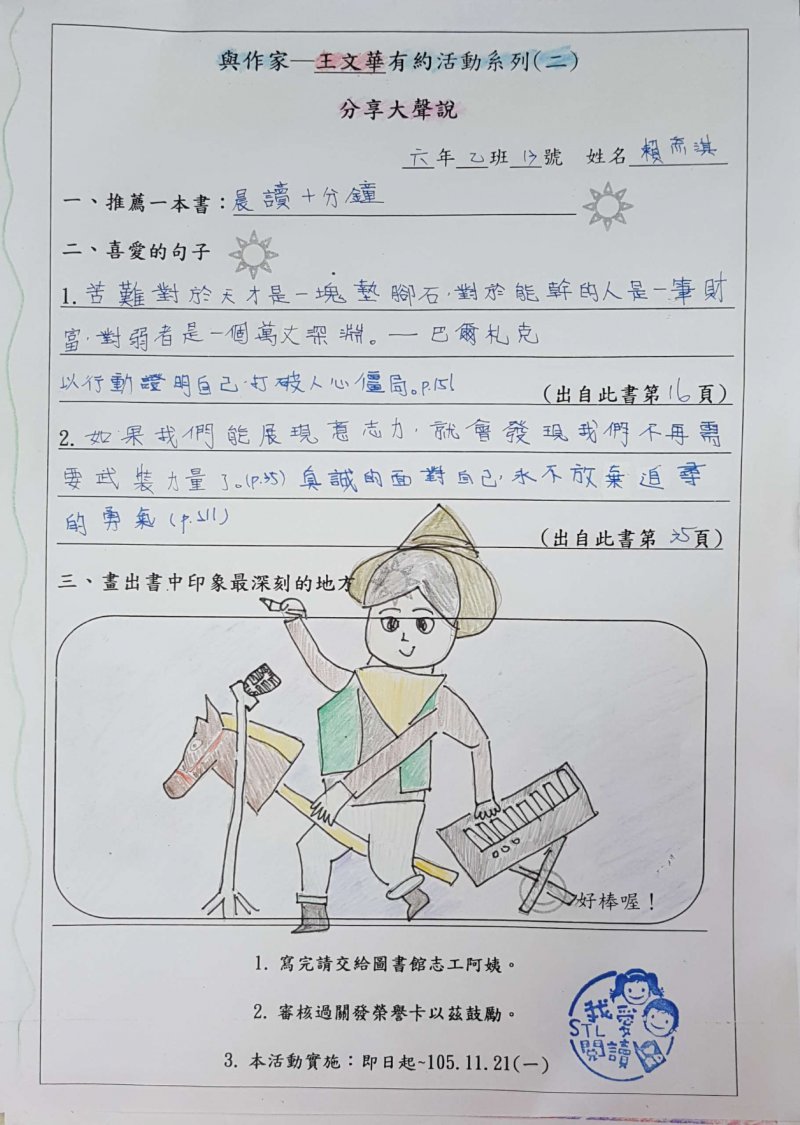 與作家—王文華有約活動系列(二)
分享大聲說
六年乙班13號 姓名賴
一、推薦一本書：晨讀十分鐘
二、喜愛的句子
1. 苦難對於天才是一塊墊腳石，對於能幹的人是一筆財
富，對弱者是一個萬丈深淵。—— 巴爾札克
以行動證明自己，打破人心僵局。p.151
(出自此書第16頁)
2. 如果我們能展現意志力，就會發現我們不再需
要武裝力量了。(p.35) 真誠的面對自己，永不放棄追尋
的勇氣(p.211)
(出自此書第35頁)
三、畫出書中印象最深刻的地方
好棒喔！
1. 寫完請交給圖書館志工阿姨。
2. 審核過關發榮譽卡以茲鼓勵。
3. 本活動實施：即日起~105.11.21(一)
我愛
STL
閱讀